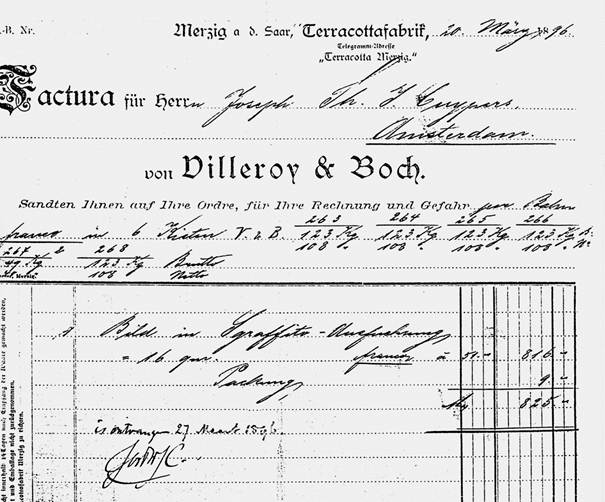 -B. Nr.
Merzig a d. Saar, Terracottafabrik, 20. März 1896
Telegramm-Adresse
„Terracotta Merzig."
Factura für Herrn Joseph Th. J. Cuypers.
Amsterdam.
von Villeroy & Boch.
Sandten Ihnen auf Ihre Ordre, für Ihre Rechnung und Gefahr per Bahn
263 264 265 266
franco in 6 Kisten V. & B. 123 Kg 123 Kg 123 Kg 123 Kg B.
108 " 108 " 108 " 108 " N.
267 & 268
49 Kg 123 Kg Brutto
108 Netto
1 Bild in Sgraffito-Ausfuehrung
= 16 qm. franco à 51.- 816.-
Packung, 9.-
825.-
is ontvangen 27 Maart 1896